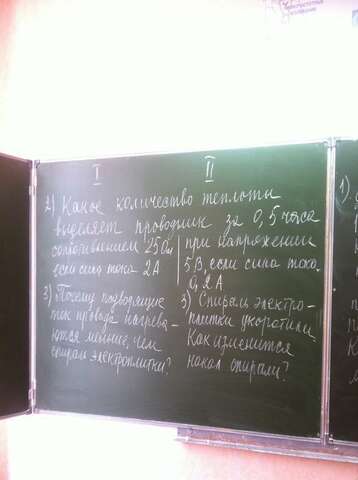 I II
2) Какое количество теплоты
выделяет проводник за 0,5 часа
сопротивлением 25 Ом при напряжении
если сила тока 2А 5В, если сила тока
0,2А
3) Почему подводящие 3) Спираль электро-
ток провода нагрева- плитки укоротили.
ются меньше, чем Как изменится
спираль электроплитки? накал спирали?
1)